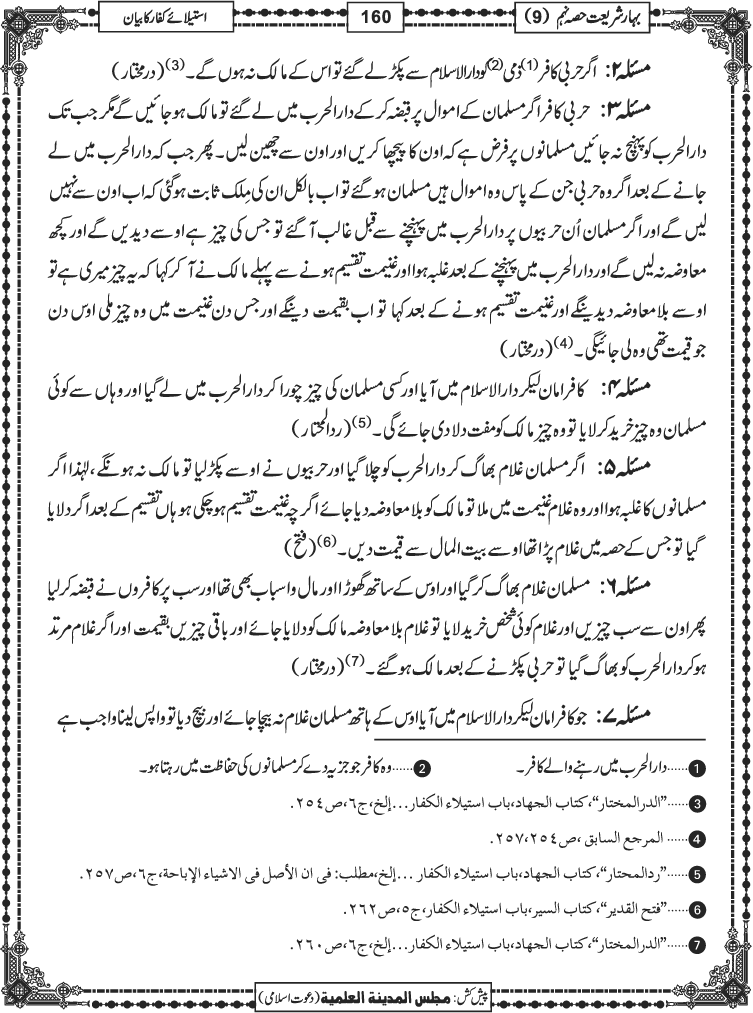 بہارِ شریعت حصہ نہم (9)
160
استیلائے کفار کا بیان
مسئلہ ۲: اگر حربی کافر (1) ذمی (2) کو دارالاسلام سے پکڑ لے گئے تو اس کے مالک نہ ہوں گے۔ (3) (درمختار)
مسئلہ ۳: حربی کافر اگر مسلمان کے اموال پر قبضہ کر کے دارالحرب میں لے گئے تو مالک ہو جائیں گے مگر جب تک
دارالحرب کو پہنچ نہ جائیں مسلمانوں پر فرض ہے کہ اون کا پیچھا کریں اور اون سے چھین لیں۔ پھر جب کہ دارالحرب میں لے
جانے کے بعد اگر وہ حربی جن کے پاس وہ اموال ہیں مسلمان ہو گئے تو اب بالکل ان کی مِلک ثابت ہو گئی کہ اب اون سے نہیں
لیں گے اور اگر مسلمان اُن حربیوں پر دارالحرب میں پہنچنے سے قبل غالب آ گئے تو جس کی چیز ہے اوسے دیدیں گے اور کچھ
معاوضہ نہ لیں گے اور دارالحرب میں پہنچنے کے بعد غلبہ ہوا اور غنیمت تقسیم ہونے سے پہلے مالک نے آ کر کہا کہ یہ چیز میری ہے تو
اوسے بلا معاوضہ دیدینگے اور غنیمت تقسیم ہونے کے بعد کہا تو اب بقیمت دینگے اور جس دن غنیمت میں وہ چیز ملی اوس دن
جو قیمت تھی وہ لی جائیگی۔ (4) (درمختار)
مسئلہ ۴: کافر امان لیکر دارالاسلام میں آیا اور کسی مسلمان کی چیز چورا کر دارالحرب میں لے گیا اور وہاں سے کوئی
مسلمان وہ چیز خرید کر لایا تو وہ چیز مالک کو مفت دلا دی جائے گی۔ (5) (ردالمحتار)
مسئلہ ۵: اگر مسلمان غلام بھاگ کر دارالحرب کو چلا گیا اور حربیوں نے اوسے پکڑ لیا تو مالک نہ ہونگے، لہٰذا اگر
مسلمانوں کا غلبہ ہوا اور وہ غلام غنیمت میں ملا تو مالک کو بلا معاوضہ دیا جائے اگرچہ غنیمت تقسیم ہو چکی ہو ہاں تقسیم کے بعد اگر دلایا
گیا تو جس کے حصہ میں غلام پڑا تھا اوسے بیت المال سے قیمت دیں۔ (6) (فتح)
مسئلہ ۶: مسلمان غلام بھاگ کر گیا اور اوس کے ساتھ گھوڑا اور مال و اسباب بھی تھا اور سب پر کافروں نے قبضہ کر لیا
پھر اون سے سب چیزیں اور غلام کوئی شخص خرید لایا تو غلام بلا معاوضہ مالک کو دلایا جائے اور باقی چیزیں بقیمت اور اگر غلام مرتد
ہو کر دارالحرب کو بھاگ گیا تو حربی پکڑنے کے بعد مالک ہو گئے۔ (7) (درمختار)
مسئلہ ۷: جو کافر امان لیکر دارالاسلام میں آیا اوس کے ہاتھ مسلمان غلام نہ بیچا جائے اور بیچ دیا تو واپس لینا واجب ہے
1 ......دارالحرب میں رہنے والے کافر۔ 2 ......وہ کافر جو جزیہ دے کر مسلمانوں کی حفاظت میں رہتا ہو۔
3 ......”الدرالمختار“، کتاب الجهاد، باب استيلاء الكفار...إلخ، ج٦، ص٢٥٤.
4 ......المرجع السابق، ص٢٥٤، ٢٥٧.
5 ......”ردالمحتار“، کتاب الجهاد، باب استيلاء الكفار ...إلخ، مطلب: فى ان الأصل فى الاشياء الإباحة، ج٦، ص٢٥٧.
6 ......”فتح القدير“، کتاب السير، باب استيلاء الكفار، ج٥، ص٢٦٢.
7 ......”الدرالمختار“، کتاب الجهاد، باب استيلاء الكفار...إلخ، ج٦، ص٢٦٠.
پیش کش: مجلس المدینة العلمیة (دعوتِ اسلامی)